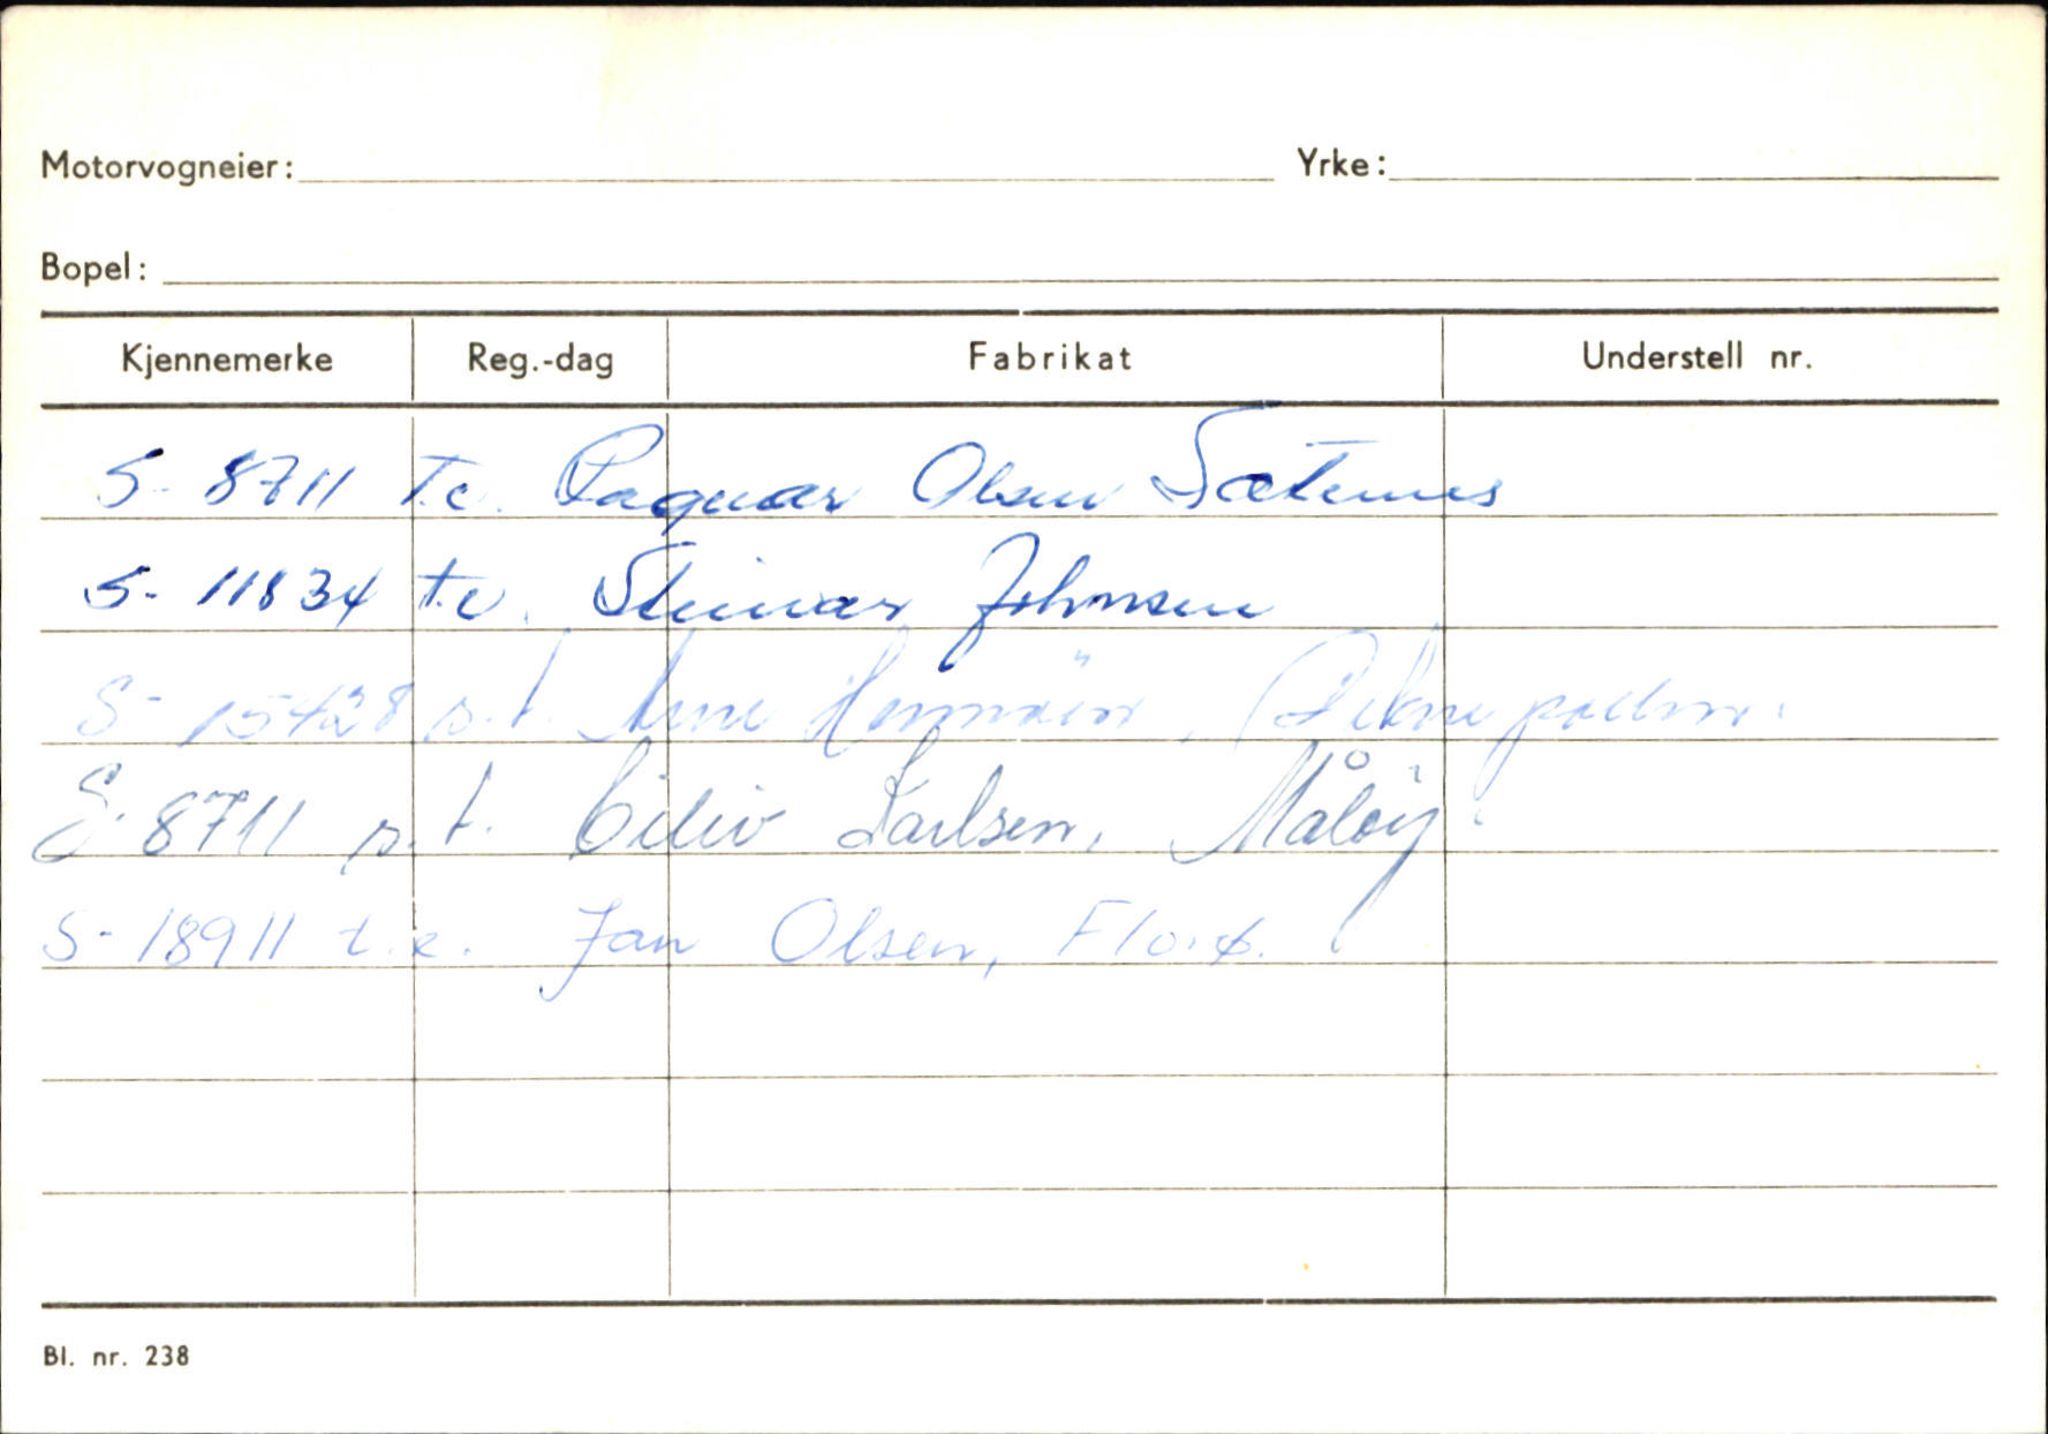 Motorvogneier: Yrke:
Bopel:
Kjennemerke Reg.-dag Fabrikat Understell nr.
S- 8711 T.c. Ragnar Olsen Sæternes
S- 11834 t.c. Steinar Johnsen
S- 15428 s.t. Arne
S- 8711 s.t. Eiliv Karlsen, Måløy
S- 18911 t.c. Jan Olsen, Florø.
Bl. nr. 238